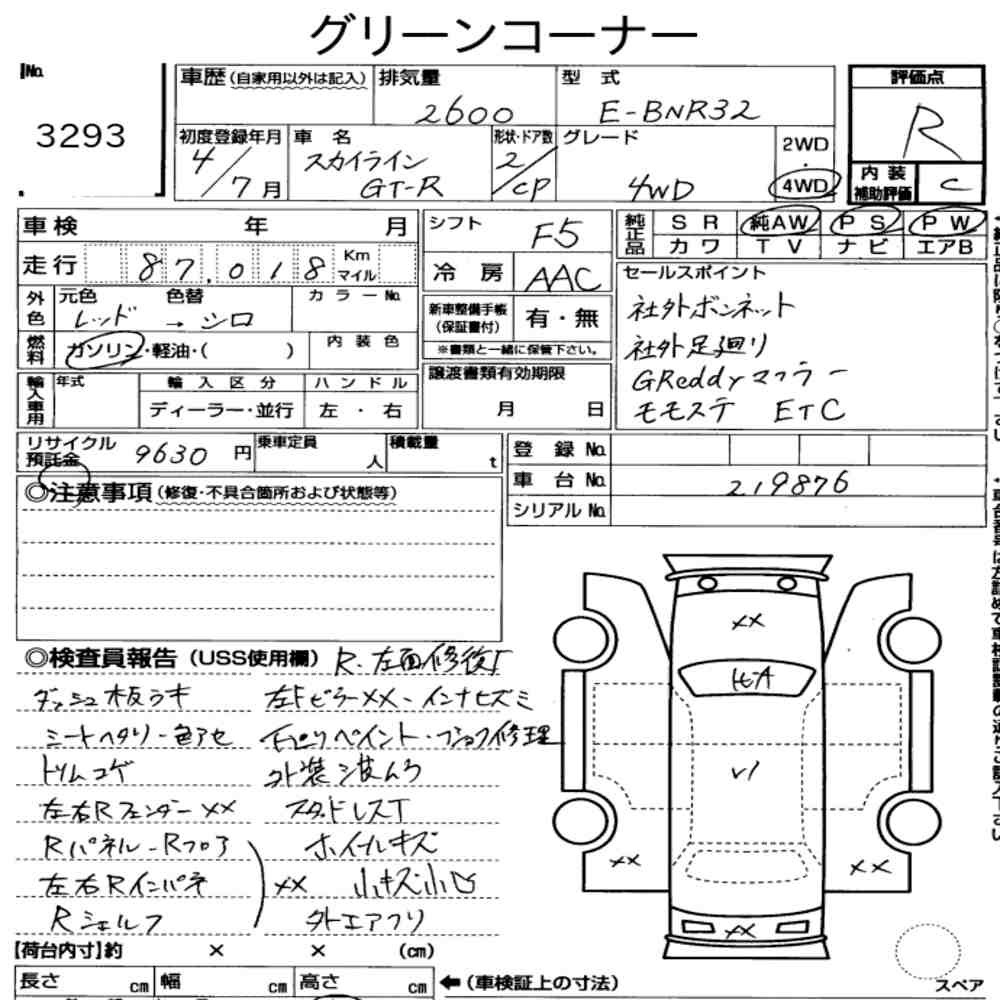 グリーンコーナー
No.
3293
車歴(自家用以外は記入)
排気量
2600
型 式
E-BNR32
評価点
R
内装補助評価
C
初度登録年月
4/7月
車 名
スカイライン
GT-R
形状・ドア数
2/CP
グレード
4WD
2WD
・
4WD
車検 年 月
走行 87,018 Km
マイル
外色
元色 色替
レッド → シロ
カラーNo.
燃料
ガソリン・軽油・( )
内装色
輸入車用
年式
輸入区分
ディーラー・並行
ハンドル
左・右
シフト
F5
冷 房
AAC
新車整備手帳
(保証書付)
有・無
※書類と一緒に保管下さい。
譲渡書類有効期限
月 日
純正品
SR 純AW PS PW
カワ TV ナビ エアB
セールスポイント
社外ボンネット
社外足廻り
GReddyマフラー
モモステ ETC
リサイクル
預託金
9630 円
乗車定員
人
積載量
t
登 録 No.
車 台 No. 219876
シリアル No.
◎注意事項(修復・不具合箇所および状態等)
◎検査員報告(USS使用欄) R.左面修復
ダッシュ板ラキ
シートヘタリ-色アセ
トリムコゲ
左右RフェンダーXX
Rパネル-Rフロア
左右Rインパネ
Rシェルフ
XX
左FピラーXX-インナヒズミ
石ピリペイント・フョウ修理
外装波ムラ
スタドレスT
ホイールキズ
小キズ小凹
外エアフリ
XX
V1
XX
XX
XX
【荷台内寸】約 × × (cm)
長さ cm
幅 cm
高さ cm
←(車検証上の寸法)
スペア